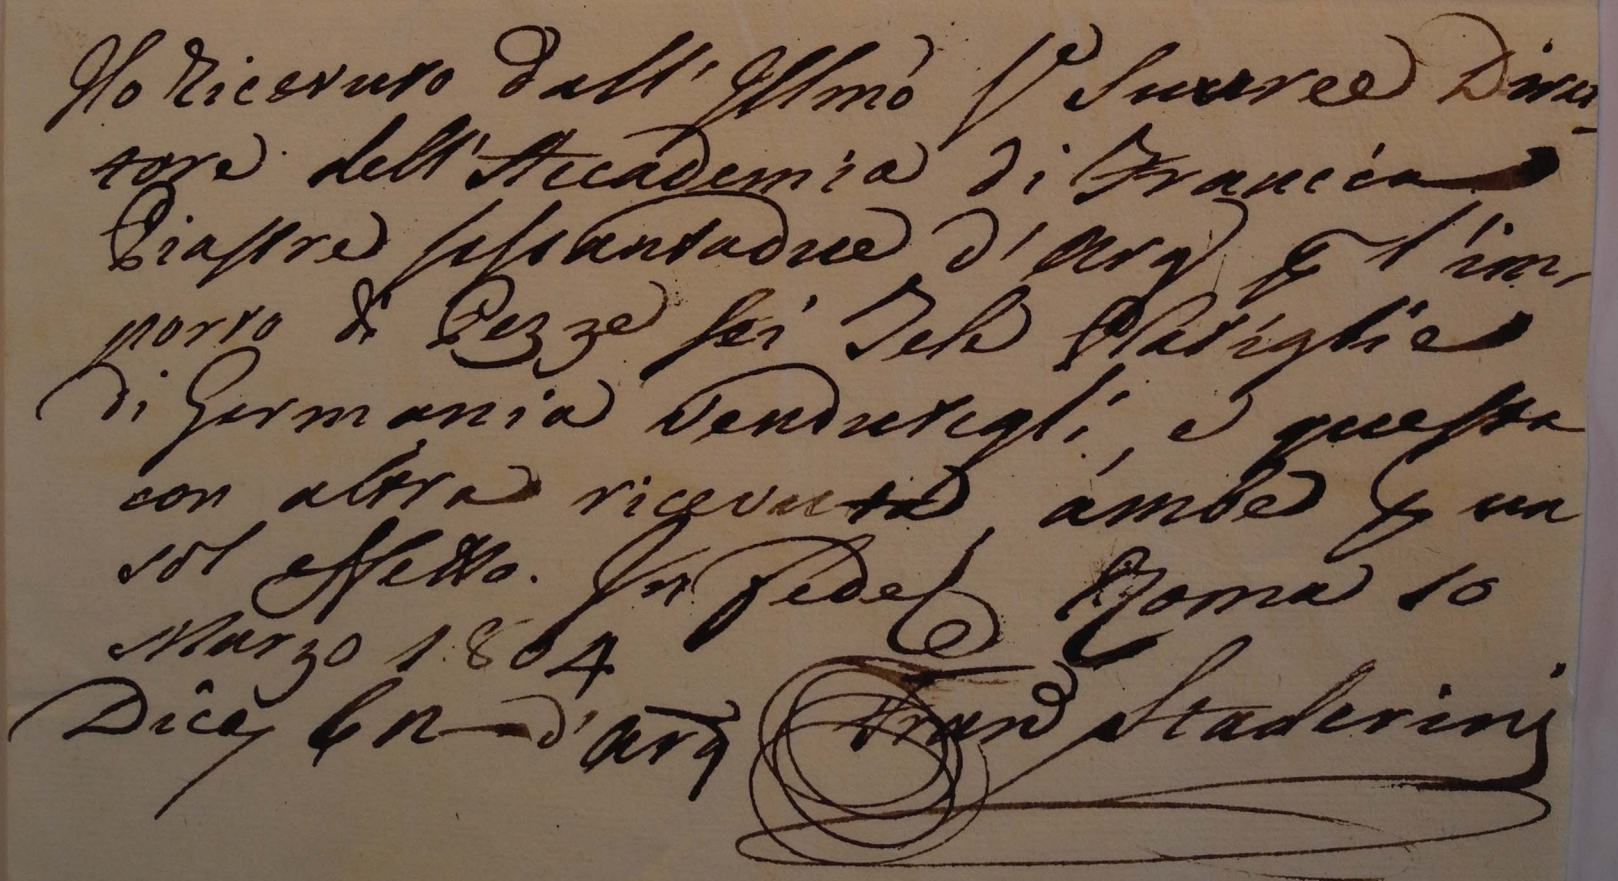 Ho ricevuto dall' Illmo Sr Suaree Diret-
tore dell' Accademia di Francia
Piastre sessantadue d' arg p l' im-
porto di Pezze sei Tele Platiglie
di Germania vendutegli, e questa
con altra ricevuta, ambe p un
sol effetto. In fede Roma 10
Marzo 1804
Dice 62 d' arg Franco Staderini